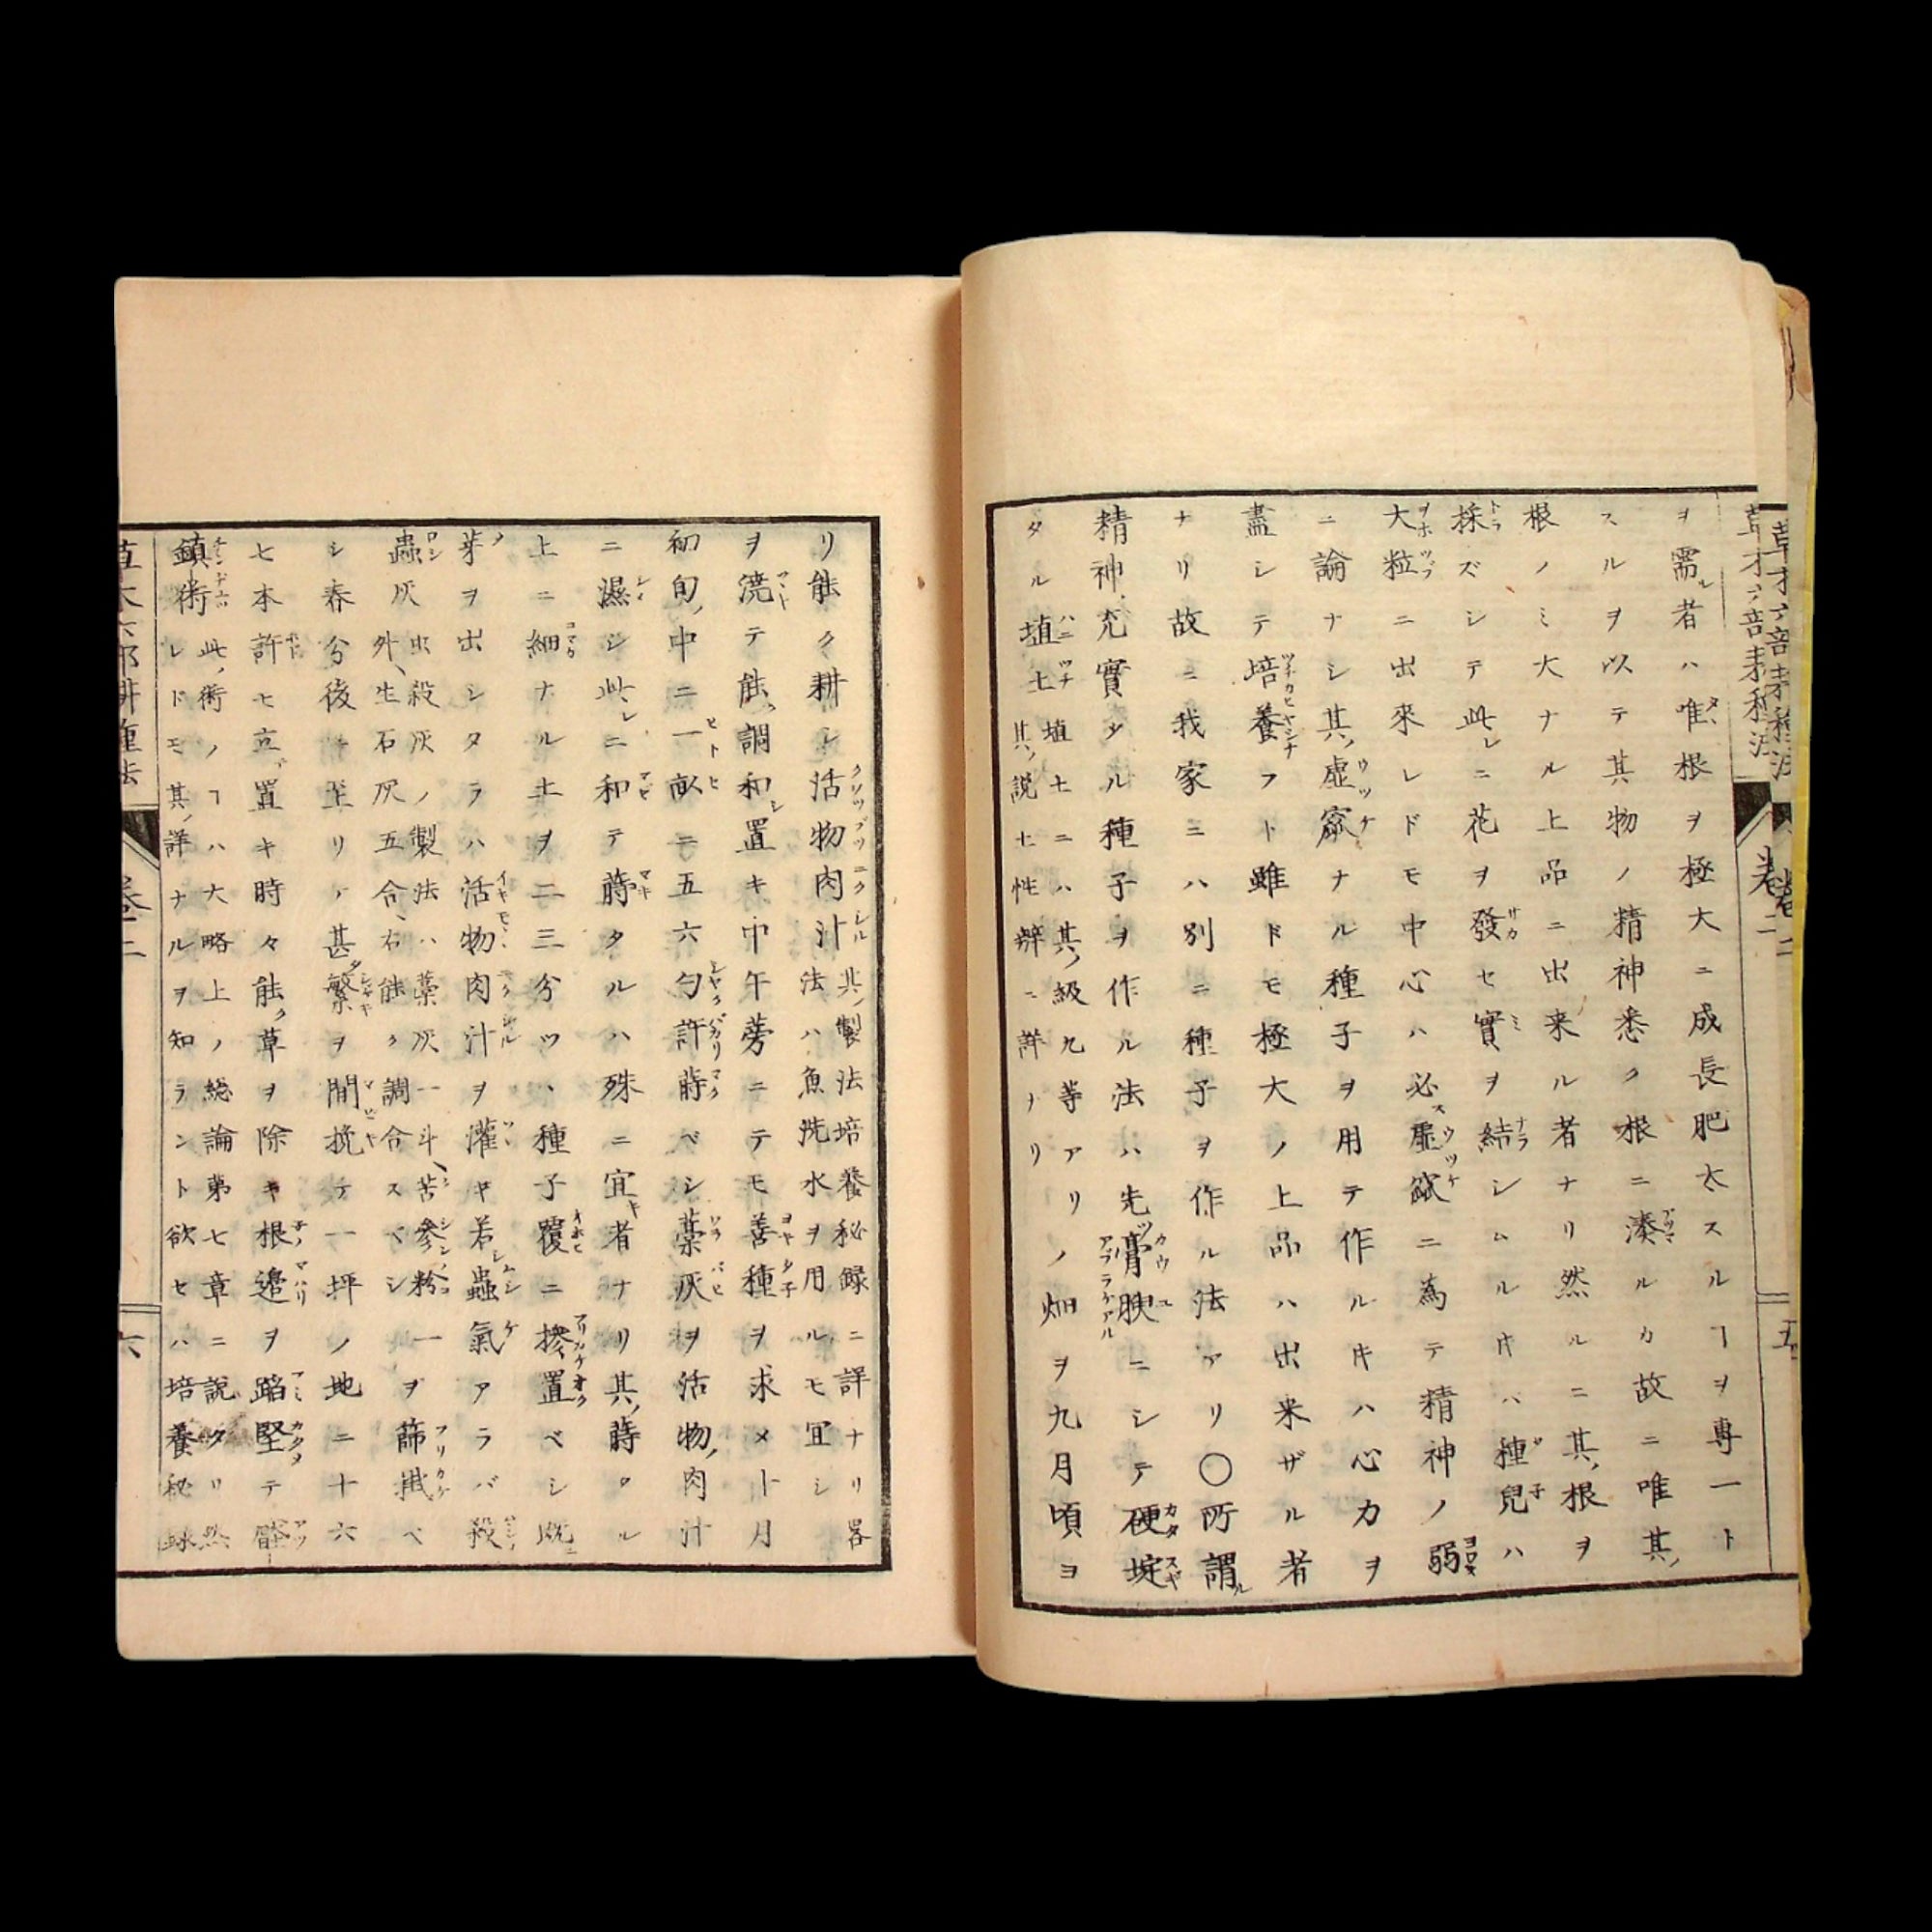 草木六部耕種法
卷二
五
ヲ需ル者ハ唯根ヲ極大ニ成長肥大スルヿヲ專一ト
スルヲ以テ其物ノ精神悉ク根ニ湊ルカ故ニ唯其ノ
根ノミ大ナル上品ニ出来ル者ナリ然ルニ其ノ根ヲ
採ズシテ此レニ花ヲ發セ實ヲ結シムル𪜈ハ種兒ハ
大粒ニ出來レドモ中心ハ必ス虚窳ニ爲テ精神ノ弱
ニ論ナシ其ノ虚窳ナル種子ヲ用テ作ル𪜈ハ心力ヲ
盡シテ培養フト雖ドモ極大ノ上品ハ出来ザル者
ナリ故ニ我家ニハ別ニ種子ヲ作ル法アリ〇所謂ル
精神充實タル種子ヲ作ル法ハ先ヅ膏腴ニシテ硬埞
タル埴土埴土ニハ其ノ級九等アリ
其ノ説土性辨ニ詳ナリノ畑ヲ九月頃ヨ
リ能ク耕シ活物肉汁其ノ製法培養秘録ニ詳ナリ畧
法ハ魚洗水ヲ用ルモ宜シ
ヲ澆テ能ク調和シ置キ中午蒡ニテモ善種ヲ求メト月
初旬ノ中ニ一畝ニ五六勺許蒔ベシ藁灰ヲ活物ノ肉汁
ニ濕シ此レニ和テ蒔タルハ殊ニ宜キ者ナリ其ノ蒔タル
上ニ細ナル土ヲ二三分ツヽ種子覆ニ摻置ベシ既ニ
芽ヲ出シタラハ活物肉汁ヲ灌ヤ若シ蟲氣アラバ殺
蟲灰虫殺灰ノ製法ハ藁灰一斗、苦參ノ粉一
外、生石灰五合、右能ク調合スベシヲ篩撒ベ
シ春分後ニ至リ甚タ繁ヲ間挽テ一坪ノ地ニ十六
七本許ヒ立置キ時々能ク草ヲ除キ根邉ヲ蹈堅テ
鎮術此ノ術ノヿハ大略上ノ總論第七章ニ説タリ然
レドモ其ノ詳ナルヲ知ラント欲セハ培養秘録
草木六部耕種法
卷二
六